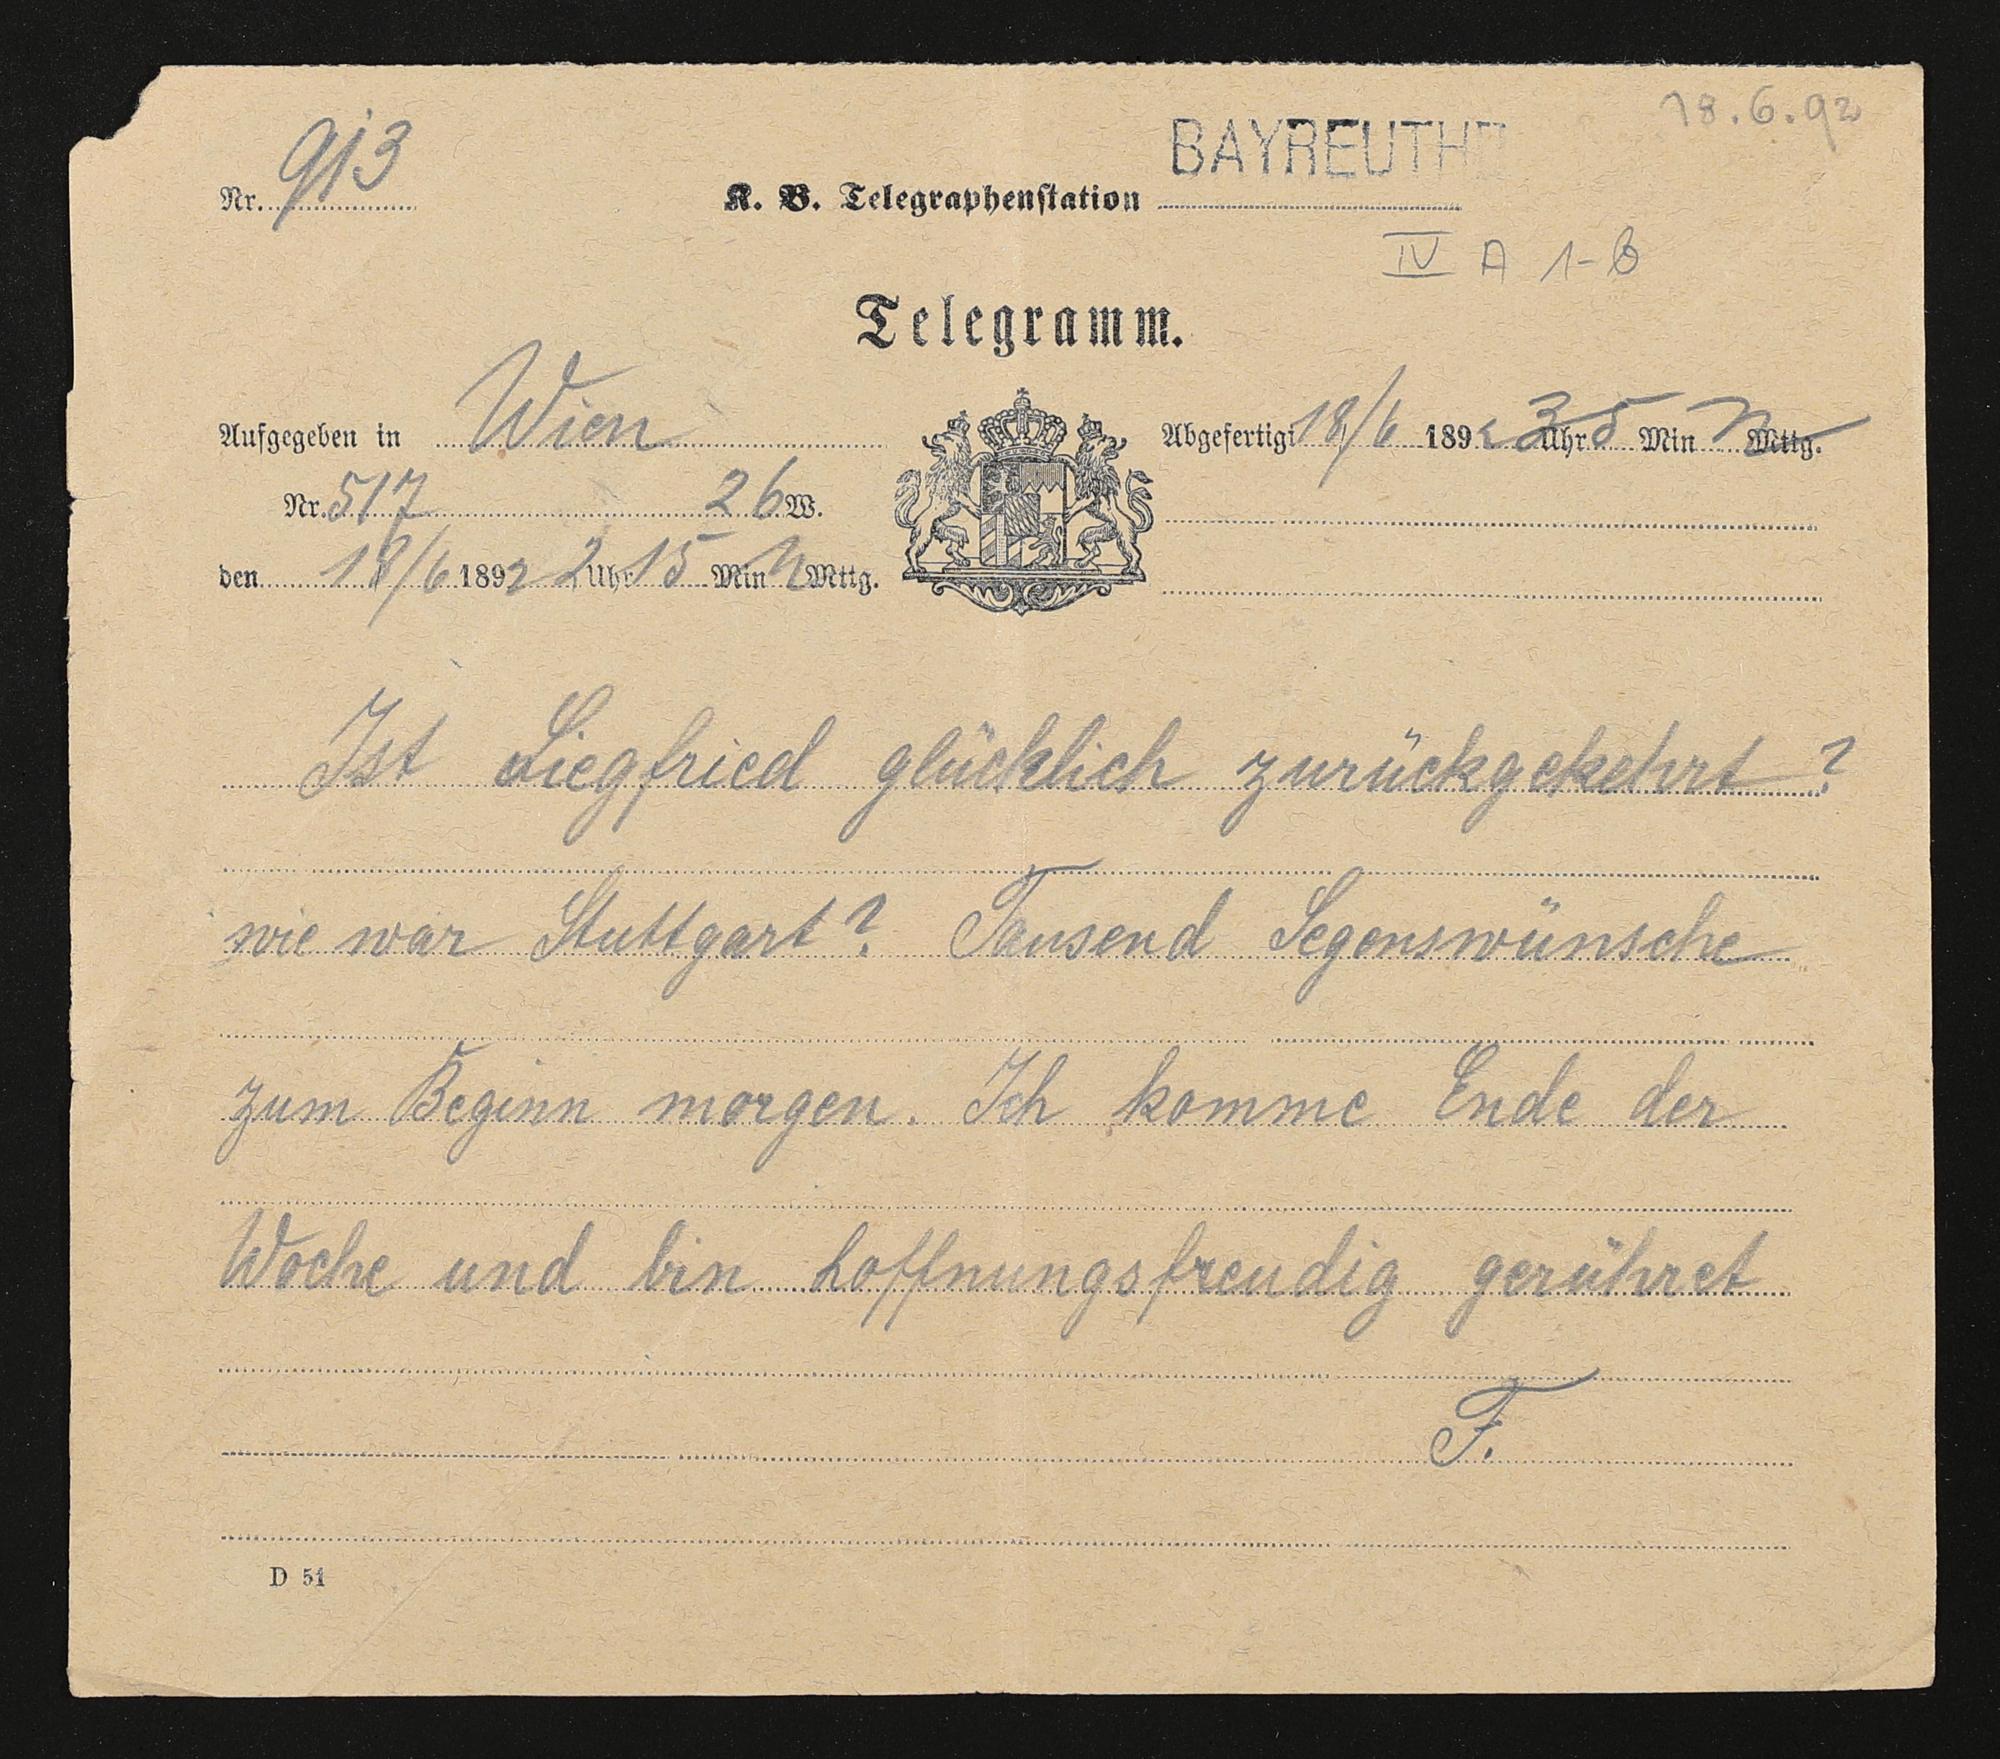 18.6.92
Nr. 913
K. B. Telegraphenstation BAYREUTH
IV A 1-6
Telegramm.
Aufgegeben in Wien
Nr. 517 26 W.
den 18/6 1892 2 Uhr 15 Min N Mttg.
Abgefertigt 18/6 1892 3 Uhr 5 Min N Mttg.
Ist Siegfried glücklich zurückgekehrt?
wie war Stuttgart? Tausend Segenswünsche
zum Beginn morgen. Ich komme Ende der
Woche und bin hoffnungsfreudig gerühret
F.
D 51